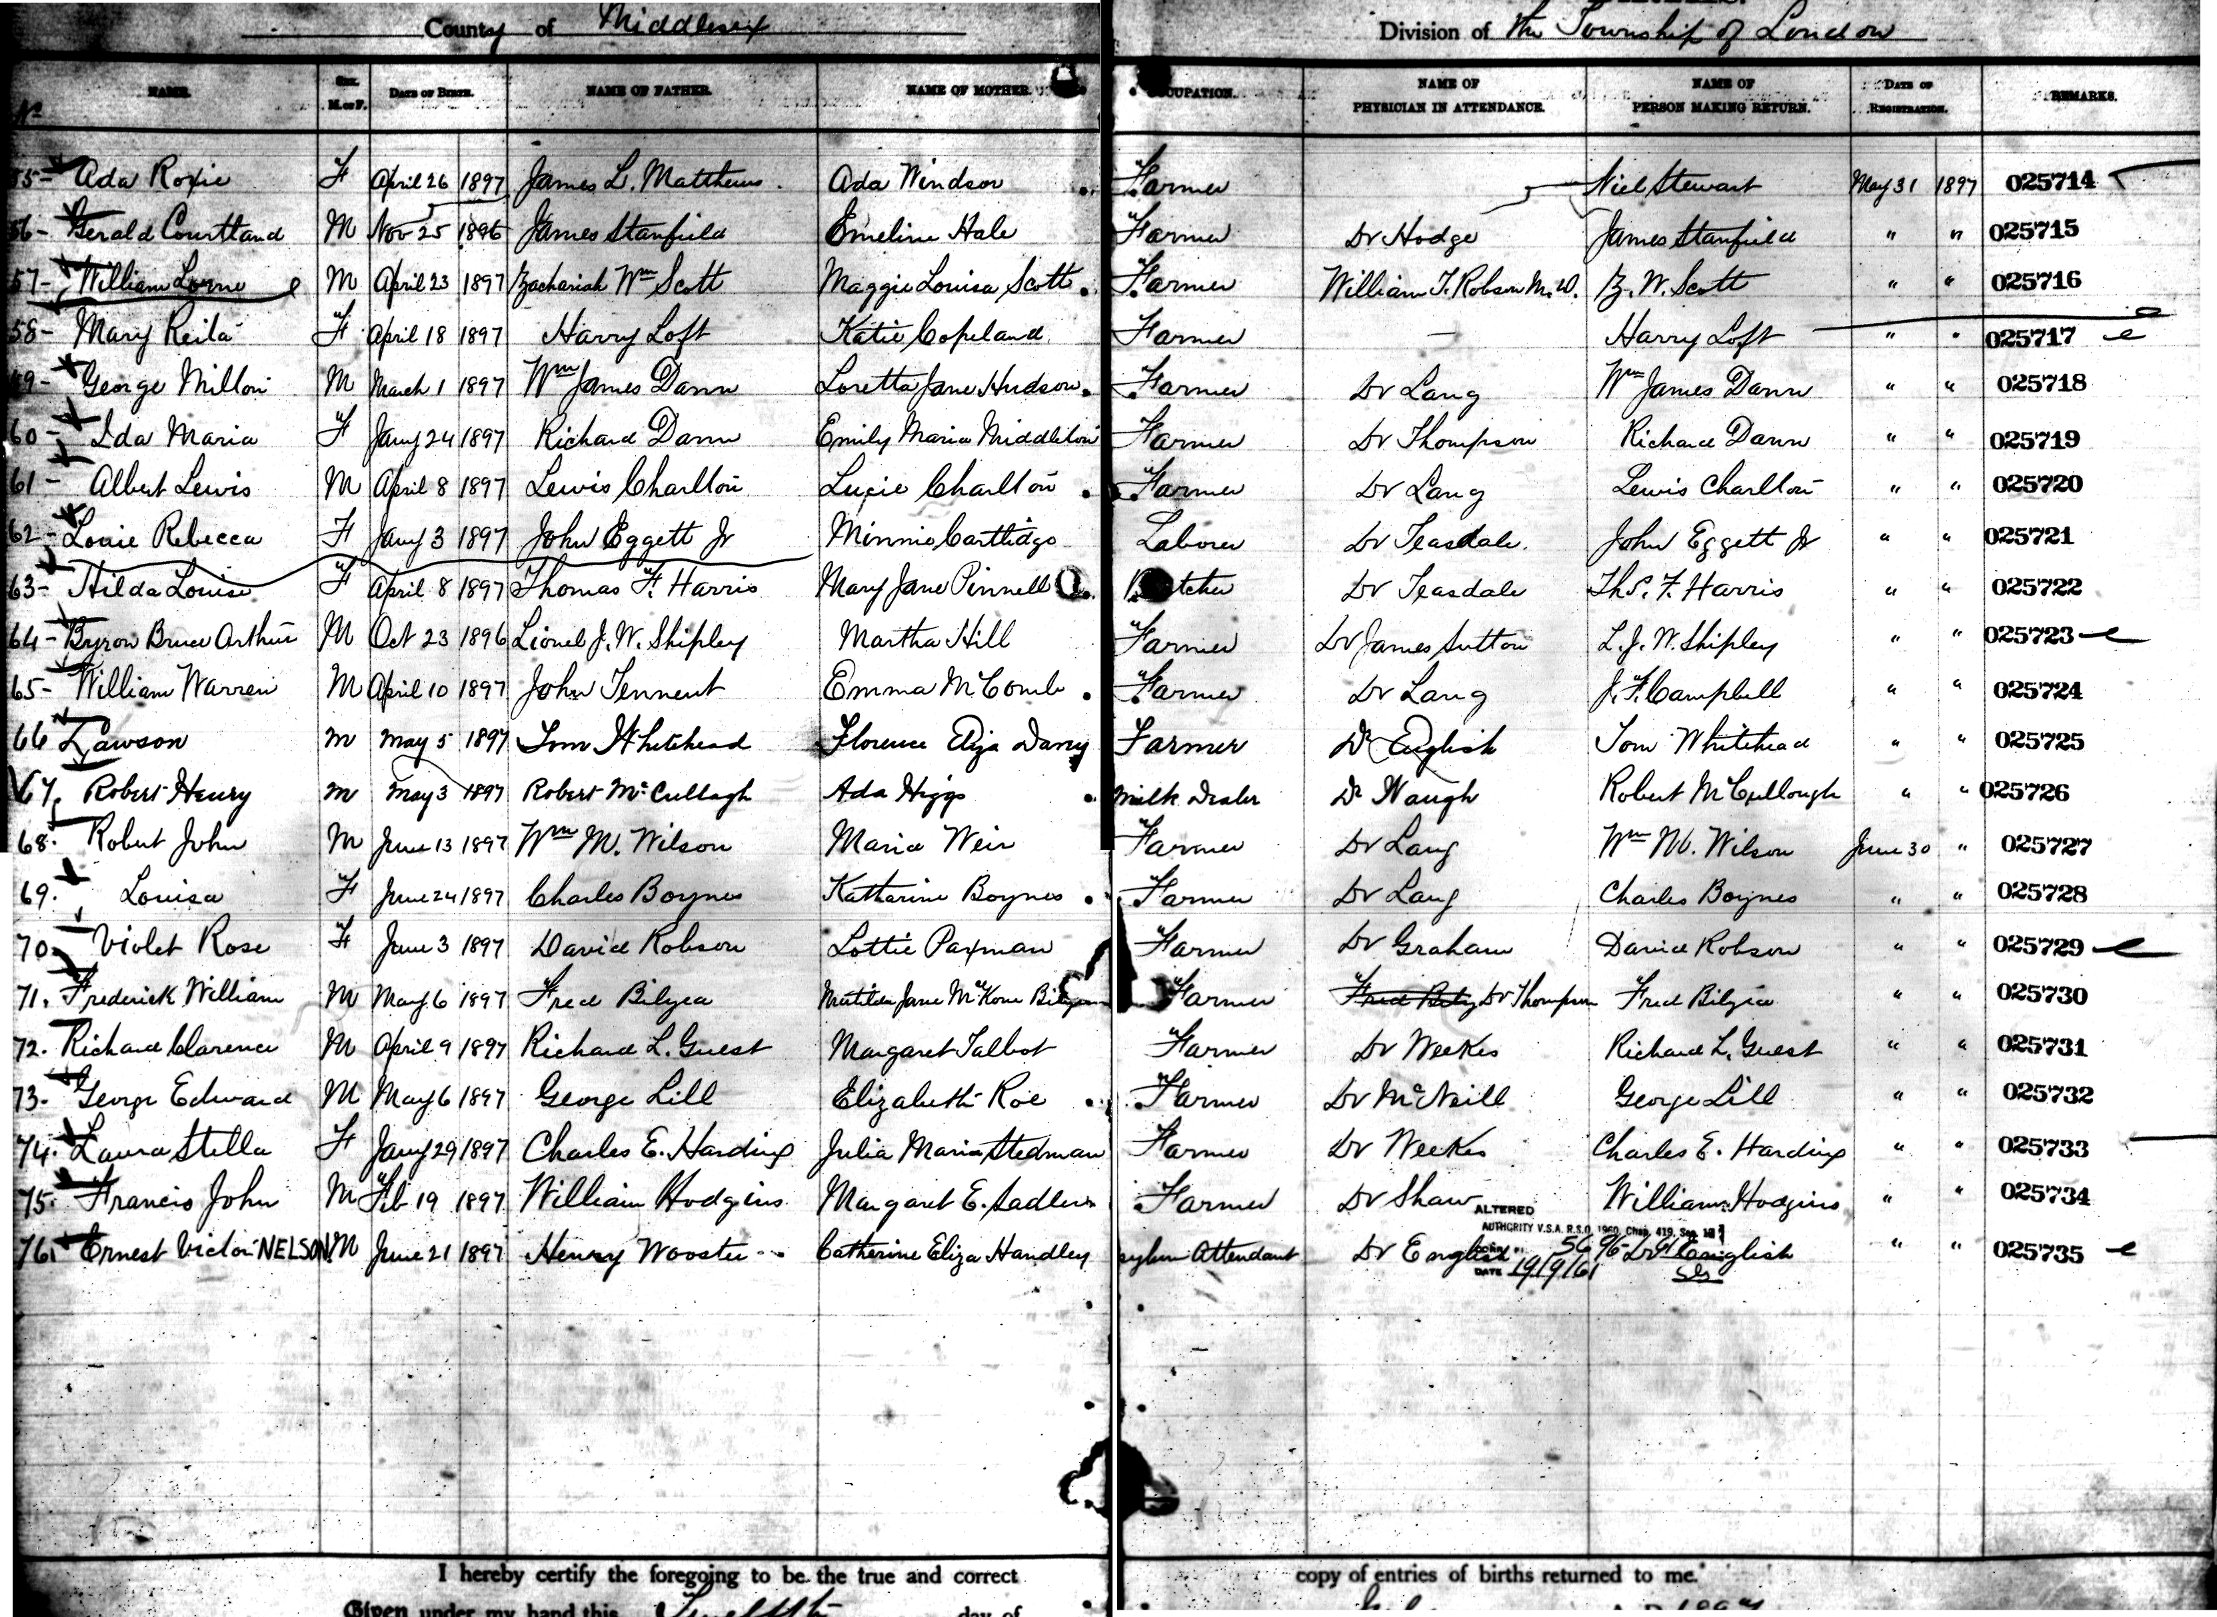 County of Middlesex Division of the Township of London
No NAME. SEX. M. or F. DATE OF BIRTH. NAME OF FATHER. NAME OF MOTHER. OCCUPATION. NAME OF PHYSICIAN IN ATTENDANCE. NAME OF PERSON MAKING RETURN. DATE OF REGISTRATION. REMARKS.
55- Ada Roxie F April 26 1897 James L. Matthews Ada Windsor Farmer Niel Stewart May 31 1897 025714
56- Gerald Courtland M Nov 25 1896 James Stanfield Emeline Hale Farmer Dr Hodge James Stanfield " " 025715
57- William Lorne M April 23 1897 Zachariah Wm Scott Maggie Louisa Scott Farmer William T. Robson M.D. Z. W. Scott " " 025716
58- Mary Reila F April 18 1897 Harry Loft Katie Copeland Farmer — Harry Loft " " 025717
59- George Milton M March 1 1897 Wm James Dann Loretta Jane Hudson Farmer Dr Lang Wm James Dann " " 025718
60- Ida Maria F Jany 24 1897 Richard Dann Emily Maria Middleton Farmer Dr Thompson Richard Dann " " 025719
61- Albert Lewis M April 8 1897 Lewis Charlton Luxie Charlton Farmer Dr Lang Lewis Charlton " " 025720
62- Louie Rebecca F Jany 3 1897 John Eggett Jr Minnie Cartlidge Laborer Dr Teasdale. John Eggett Jr " " 025721
63- Hilda Louise F April 8 1897 Thomas F. Harris Mary Jane Pinnell Butcher Dr Teasdale Ths. F. Harris " " 025722
64- Byron Bruce Arthur M Oct 23 1896 Lionel J. W. Shipley Martha Hill Farmer Dr James Sutton L. J. W. Shipley " " 025723
65- William Warren M April 10 1897 John Tennent Emma McComb Farmer Dr Lang J. F. Campbell " " 025724
66 Lawson m May 5 1897 Tom Whitehead Florence Eliza Dancy Farmer Dr English Tom Whitehead " " 025725
67, Robert Henry m May 3 1897 Robert McCullagh Ada Higgs Milk Dealer Dr Waugh Robert McCullough " " 025726
68. Robert John M June 13 1897 Wm M. Wilson Maria Weir Farmer Dr Lang Wm M. Wilson June 30 " 025727
69. Louisa F June 24 1897 Charles Boynes Katharine Boynes Farmer Dr Lang Charles Boynes " " 025728
70 Violet Rose F June 3 1897 David Robson Lottie Paxman Farmer Dr Graham David Robson " " 025729
71. Frederick William M May 6 1897 Fred Bilyea Matilda Jane McKone Bilyea Farmer Fred Bily Dr Thompson Fred Bilyea " " 025730
72. Richard Clarence M April 9 1897 Richard L. Guest Margaret Talbot Farmer Dr Weekes Richard L. Guest " " 025731
73. George Edward M May 6 1897 George Lill Elizabeth Roe Farmer Dr McNeill George Lill " " 025732
74. Laura Stella F Jany 29 1897 Charles E. Harding Julia Maria Stedman Farmer Dr Weekes Charles E. Harding " " 025733
75. Francis John M Feb 19 1897 William Hodgins Margaret E. Sadler Farmer Dr Shaw William Hodgins " " 025734
ALTERED
AUTHORITY V.S.A. R.S.O. 1960, Chap. 419, Sec.
76. Ernest Victor NELSON M June 21 1897 Henry Wooster Catherine Eliza Handley Asylum Attendant Dr English Dr English " " 025735
DATE 19/9/61
I hereby certify the foregoing to be the true and correct copy of entries of births returned to me.
Given under my hand this Twelfth day of July A. D. 1897